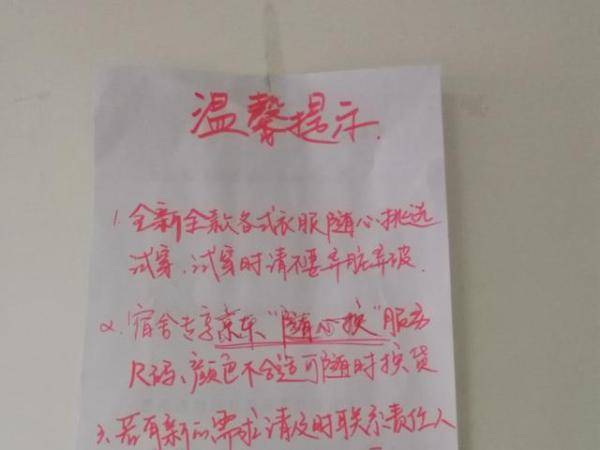 温馨提示.
1.全新全款各式衣服随心挑选
试穿.试穿时请不要弄脏弄破.
2.宿舍专享京东"随心换"服务
尺码、颜色不合适可随时换货
3.若有新的需求请及时联系责任人